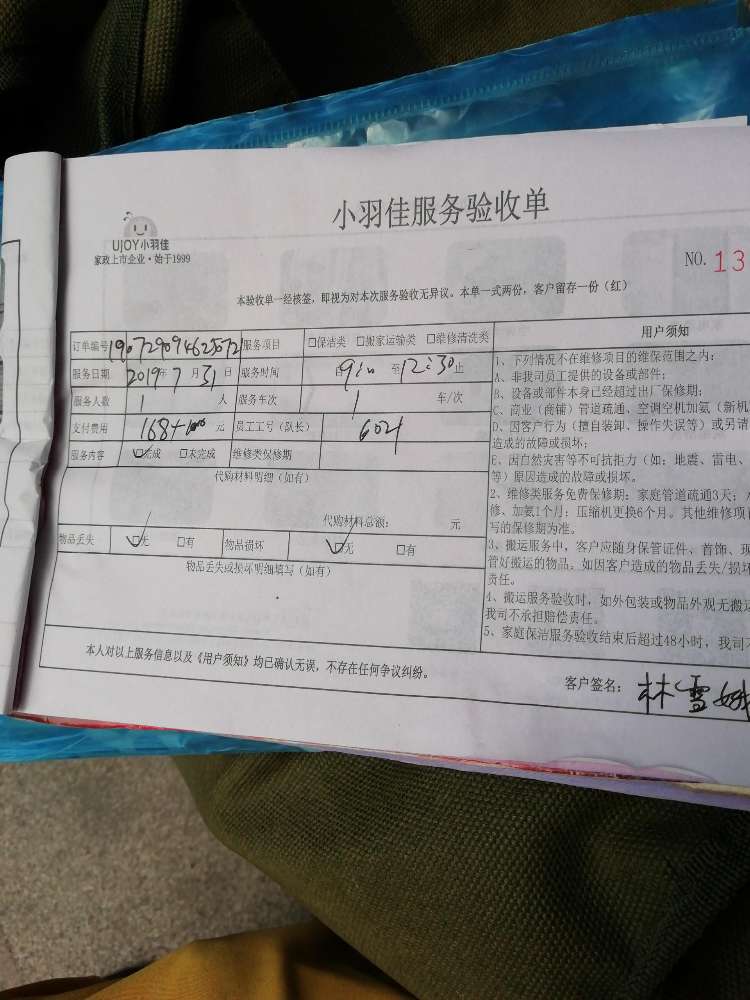 小羽佳服务验收单
UJOY小羽佳
家政上市企业·始于1999
NO. 13
本验收单一经核签，即视为对本次服务验收无异议。本单一式两份，客户留存一份（红）
订单编号 服务项目 □保洁类 □搬家运输类 □维修清洗类
服务日期 2019年7月31日 服务时间 至12:30止
服务人数 1 人 服务车次 1 车/次
支付费用 168+ 元 员工工号（队长） 604
服务内容 ☑完成 □未完成 维修类保修期
代购材料明细（如有）
代购材料总额： 元
物品丢失 ☑无 □有 物品损坏 ☑无 □有
物品丢失或损坏明细填写（如有）
用户须知
1、下列情况不在维修项目的维保范围之内：
A、非我司员工提供的设备或部件；
B、设备或部件本身已经超过出厂保修期；
C、商业（商铺）管道疏通、空调空机加氨（新机
D、因客户行为（擅自装卸、操作失误等）或另请
造成的故障或损坏；
E、因自然灾害等不可抗拒力（如：地震、雷电、
等）原因造成的故障或损坏。
2、维修类服务免费保修期：家庭管道疏通3天；
修、加氨1个月；压缩机更换6个月。其他维修项
写的保修期为准。
3、搬运服务中，客户应随身保管证件、首饰、现
管好搬运的物品，如因客户造成的物品丢失/损坏
责任。
4、搬运服务验收时，如外包装或物品外观无搬运
我司不承担赔偿责任。
5、家庭保洁服务验收结束后超过48小时，我司不
本人对以上服务信息以及《用户须知》均已确认无误，不存在任何争议纠纷。
客户签名：林雪娥